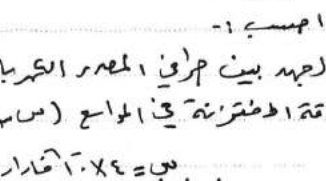 احسب :-
لجهد بين طرفي المصدر الكهربا
قة المختزنة في المواسع (س
س = ٤ × ١٠ فاراد